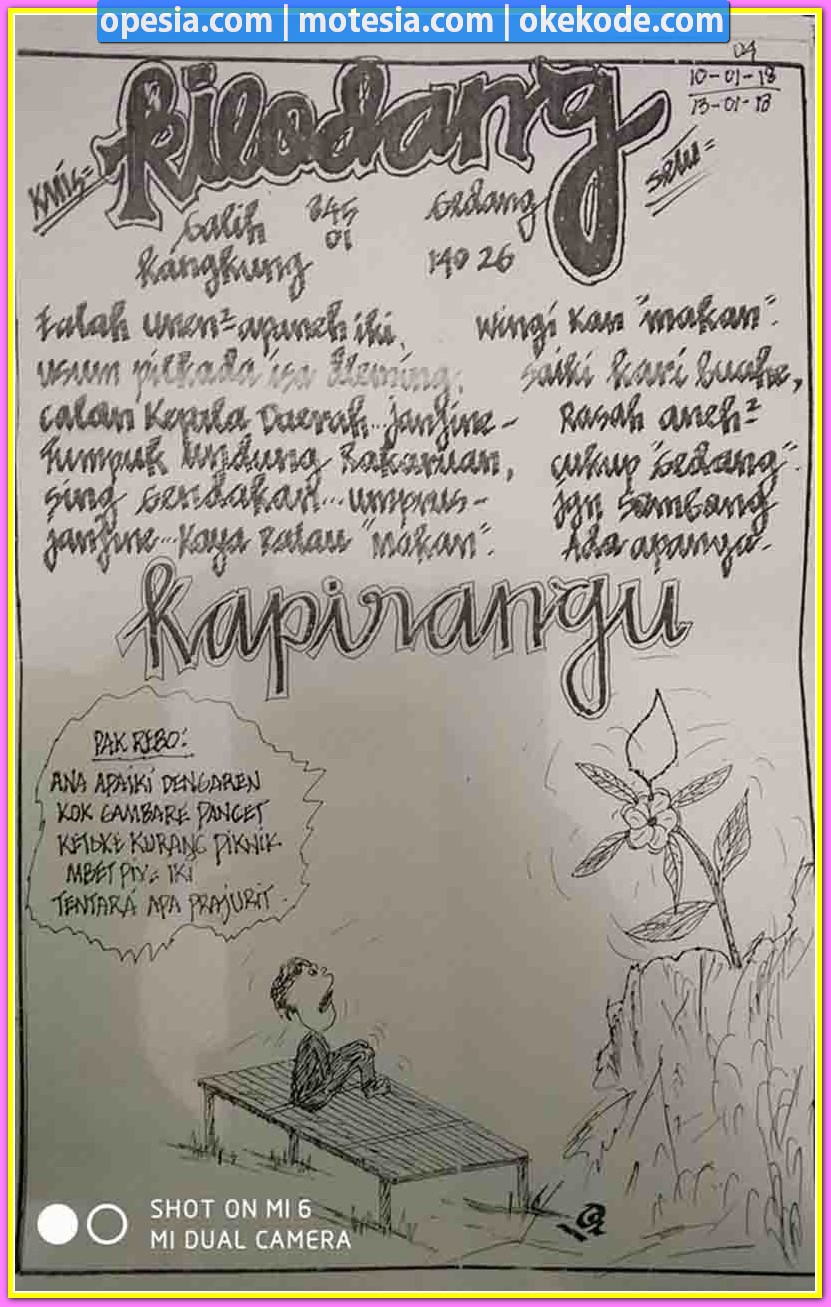 opesia.com | motesia.com | okekode.com
04
10-01-18
13-01-18
kilodang
KMIS=
Galih
Kangkung
345
01
Gedang
140 26
Falah unen² apaneh iki,
usum pilkada isa
calan Kepala Daerah.. janjine-
Tumpuk undung Rakaruan,
sing Gendakan... umprus-
janjine... Kaya Kalau "makan".
wingi Kan "makan".
saiki kari buahe,
Rasah aneh²
cukup "Gedang".
jgn Sambang
Ada apanya.
kapirangu
PAK REBO:
ANA APAIKI DENGAREN
KOK GAMBARE PANGET
KETOKE KURANG PIKNIK
MBET PIY= IKI
TENTARA APA PRAJURIT.
SHOT ON MI 6
MI DUAL CAMERA